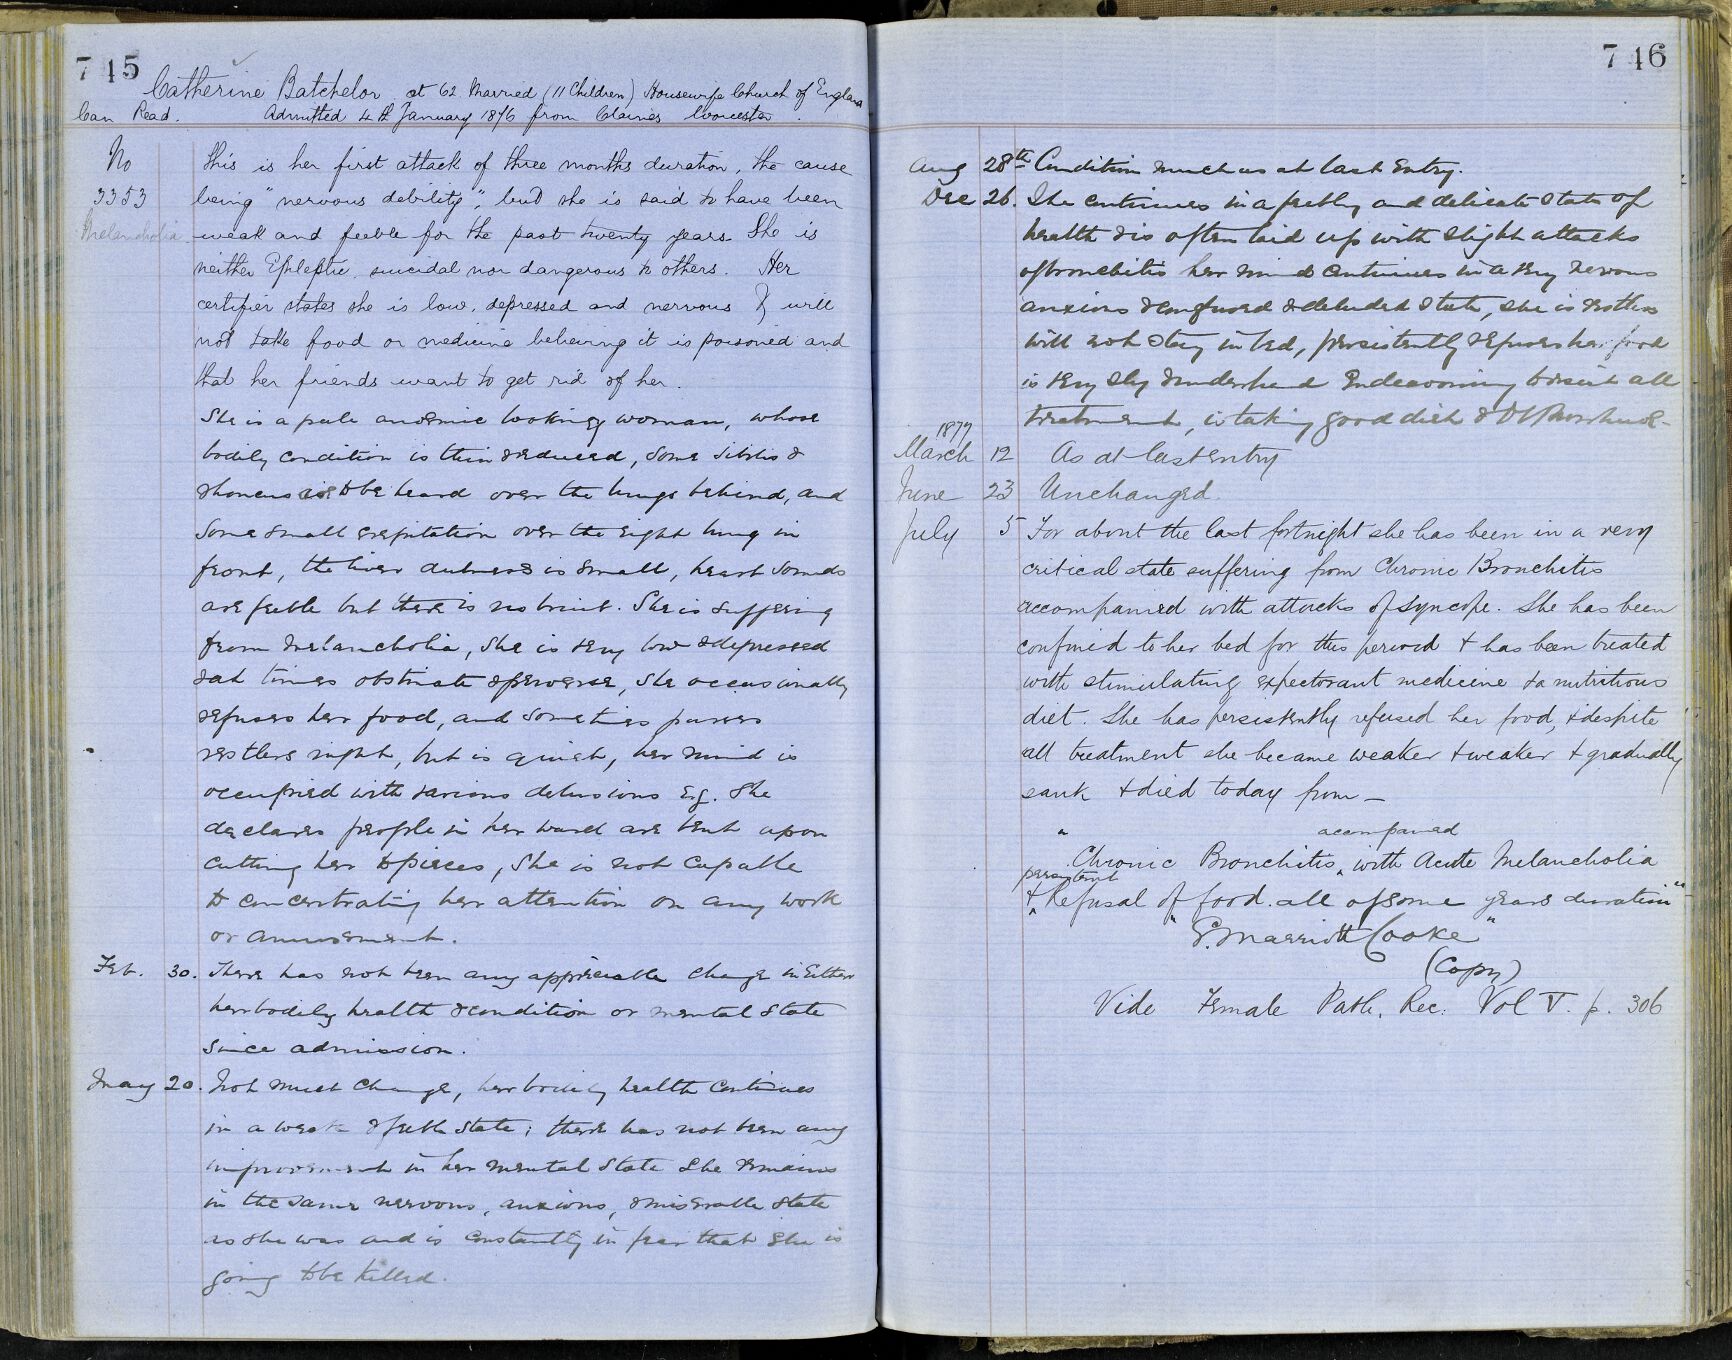 745
Catherine Batchelor æt 62 Married (11 Children) Housewife Church of England
Can Read. Admitted 4th January 1876 from Claines Worcester.
No
3353
Melancholia
This is her first attack of three months duration, the cause
being "nervous debility", but she is said to have been
weak and feeble for the past twenty years. She is
neither Epileptic suicidal nor dangerous to others. Her
certifier states she is low, depressed and nervous & will
not take food or medicine believing it is poisoned and
that her friends want to get rid of her.
She is a pale anæmic looking woman, whose
bodily condition is thin & reduced, some sibilus &
rhoncus are to be heard over the lungs behind, and
some small crepitation over the right lung in
front, the liver dulness is small, heart sounds
are feeble but there is no bruit. She is suffering
from melancholia, she is very low & depressed
& at times obstinate & perverse, she occasionally
refuses her food, and sometimes passes
restless night, but is quiet, her mind is
occupied with various delusions e.g. She
declares people in her ward are bent upon
cutting her to pieces, she is not capable
to concentrating her attention on any work
or amusement.
Feb. 30. There has not been any appreciable change in either
her bodily health & condition or mental state
since admission.
May 20. Not much change, her bodily health continues
in a weak & feeble state; there has not been any
improvement in her mental state she remains
in the same nervous, anxious, & miserable state
as she was and is constantly in fear that she is
going to be killed.
746
Aug 28th Condition much as at last entry.
Dec 26. She continues in a feeble and delicate state of
health & is often laid up with slight attacks
of bronchitis her mind continues in a very nervous
anxious & confused & deluded state, she is restless
will not stay in bed, persistently refuses her food
is very sly & underhand endeavouring to resist all
treatment, is taking good diet &
1877
March 12 As at last entry
June 23 Unchanged.
July 5 For about the last fortnight she has been in a very
critical state suffering from Chronic Bronchitis
accompanied with attacks of syncope. She has been
confined to her bed for this period & has been treated
with stimulating expectorant medicine & a nutritious
diet. She has persistently refused her food, & despite
all treatment she became weaker & weaker & gradually
sank & died today from —
accompanied
"Chronic Bronchitis ‸ with Acute Melancholia
persistent
& ‸ Refusal of food. all of some years duration"
"E. Marriott Cooke"
(Copy)
Vide Female Path. Rec. Vol V. p. 306